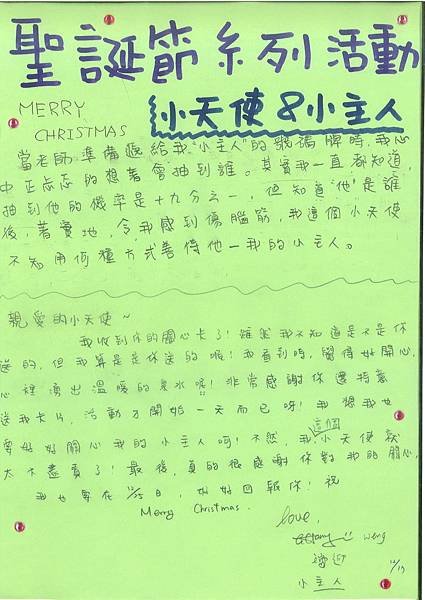 聖誕節系列活動
MERRY
CHRISTMAS
小天使&小主人
當老師準備遞給我"小主人"的號碼牌時,我心
中正忐忑的想著會抽到誰。其實我一直都知道,
抽到他的機率是十九分之一,但知道"他"是誰
後,著實地,令我感到傷腦筋,我這個小天使
不知用何種方式善待他—我的小主人。
親愛的小天使~
我收到你的關心卡了!雖然我不知道是不是你
送的,但我算是是你送的啦!我看到時,覺得好開心,
心裡湧出溫暖的泉水喔!非常感謝你還特意
送我卡片,活動才開始一天而已呀!我想我也
要好好關心我的小主人呵!不然,我這個小天使就
太不盡責了!最後,真的很感謝你對我的關心,
我也要在12/25日,好好回報你!祝
Merry Christmas.
love,
Weng
小主人
12/19